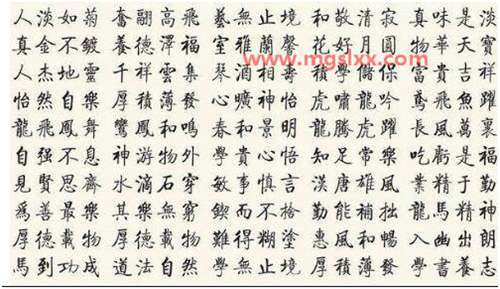 人淡如菊 奮翮高飛 藝無止境 和敬清寂 真味是淡
真金不鍍 養德澤福 室雅蘭馨 花好月圓 物華天寶
www.mgslxx.com
人杰地靈 千祥雲集 酒相 富貴吉祥
怡然自樂 厚積薄發 曠神怡 虎嘯龍吟 鳶飛魚躍
龍飛鳳舞 鸞鳳和鳴 春和景明 龍騰虎躍 長風萬裏
自强不息 神游物外 學貴心悟 知足常樂 吃虧是福
見賢思齊 水滴石穿 敏事慎言 漢唐雄風 業精于勤
爲善最樂 其樂無窮 鍥而不捨 勤能補拙 龍馬精神
厚德載物 厚德載物 難得糊塗 惠風和暢 入幽出朗
馬到功成 道法自然 學無止境 厚積薄發 學書養志